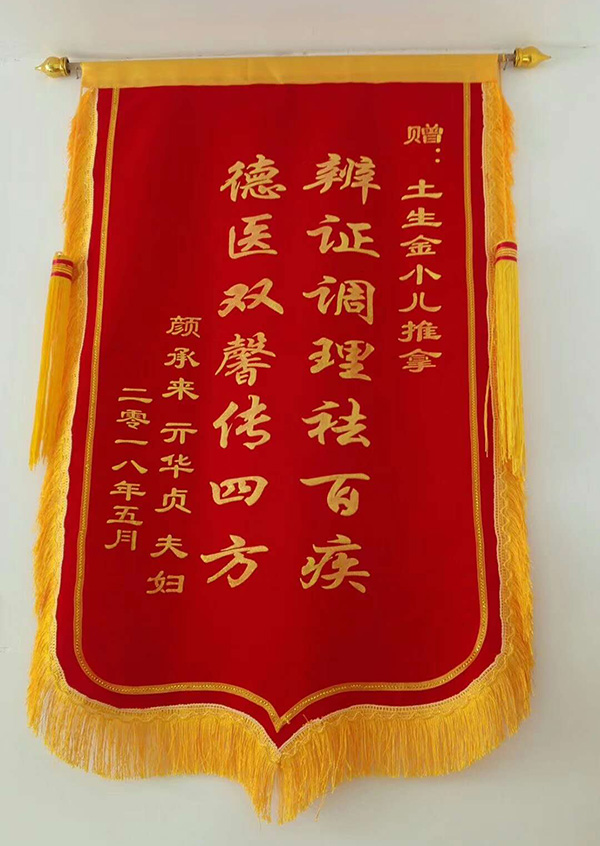 赠：土生金小儿推拿
辨证调理祛百疾
德医双馨传四方
颜承来 亓华贞 夫妇
二零一八年五月